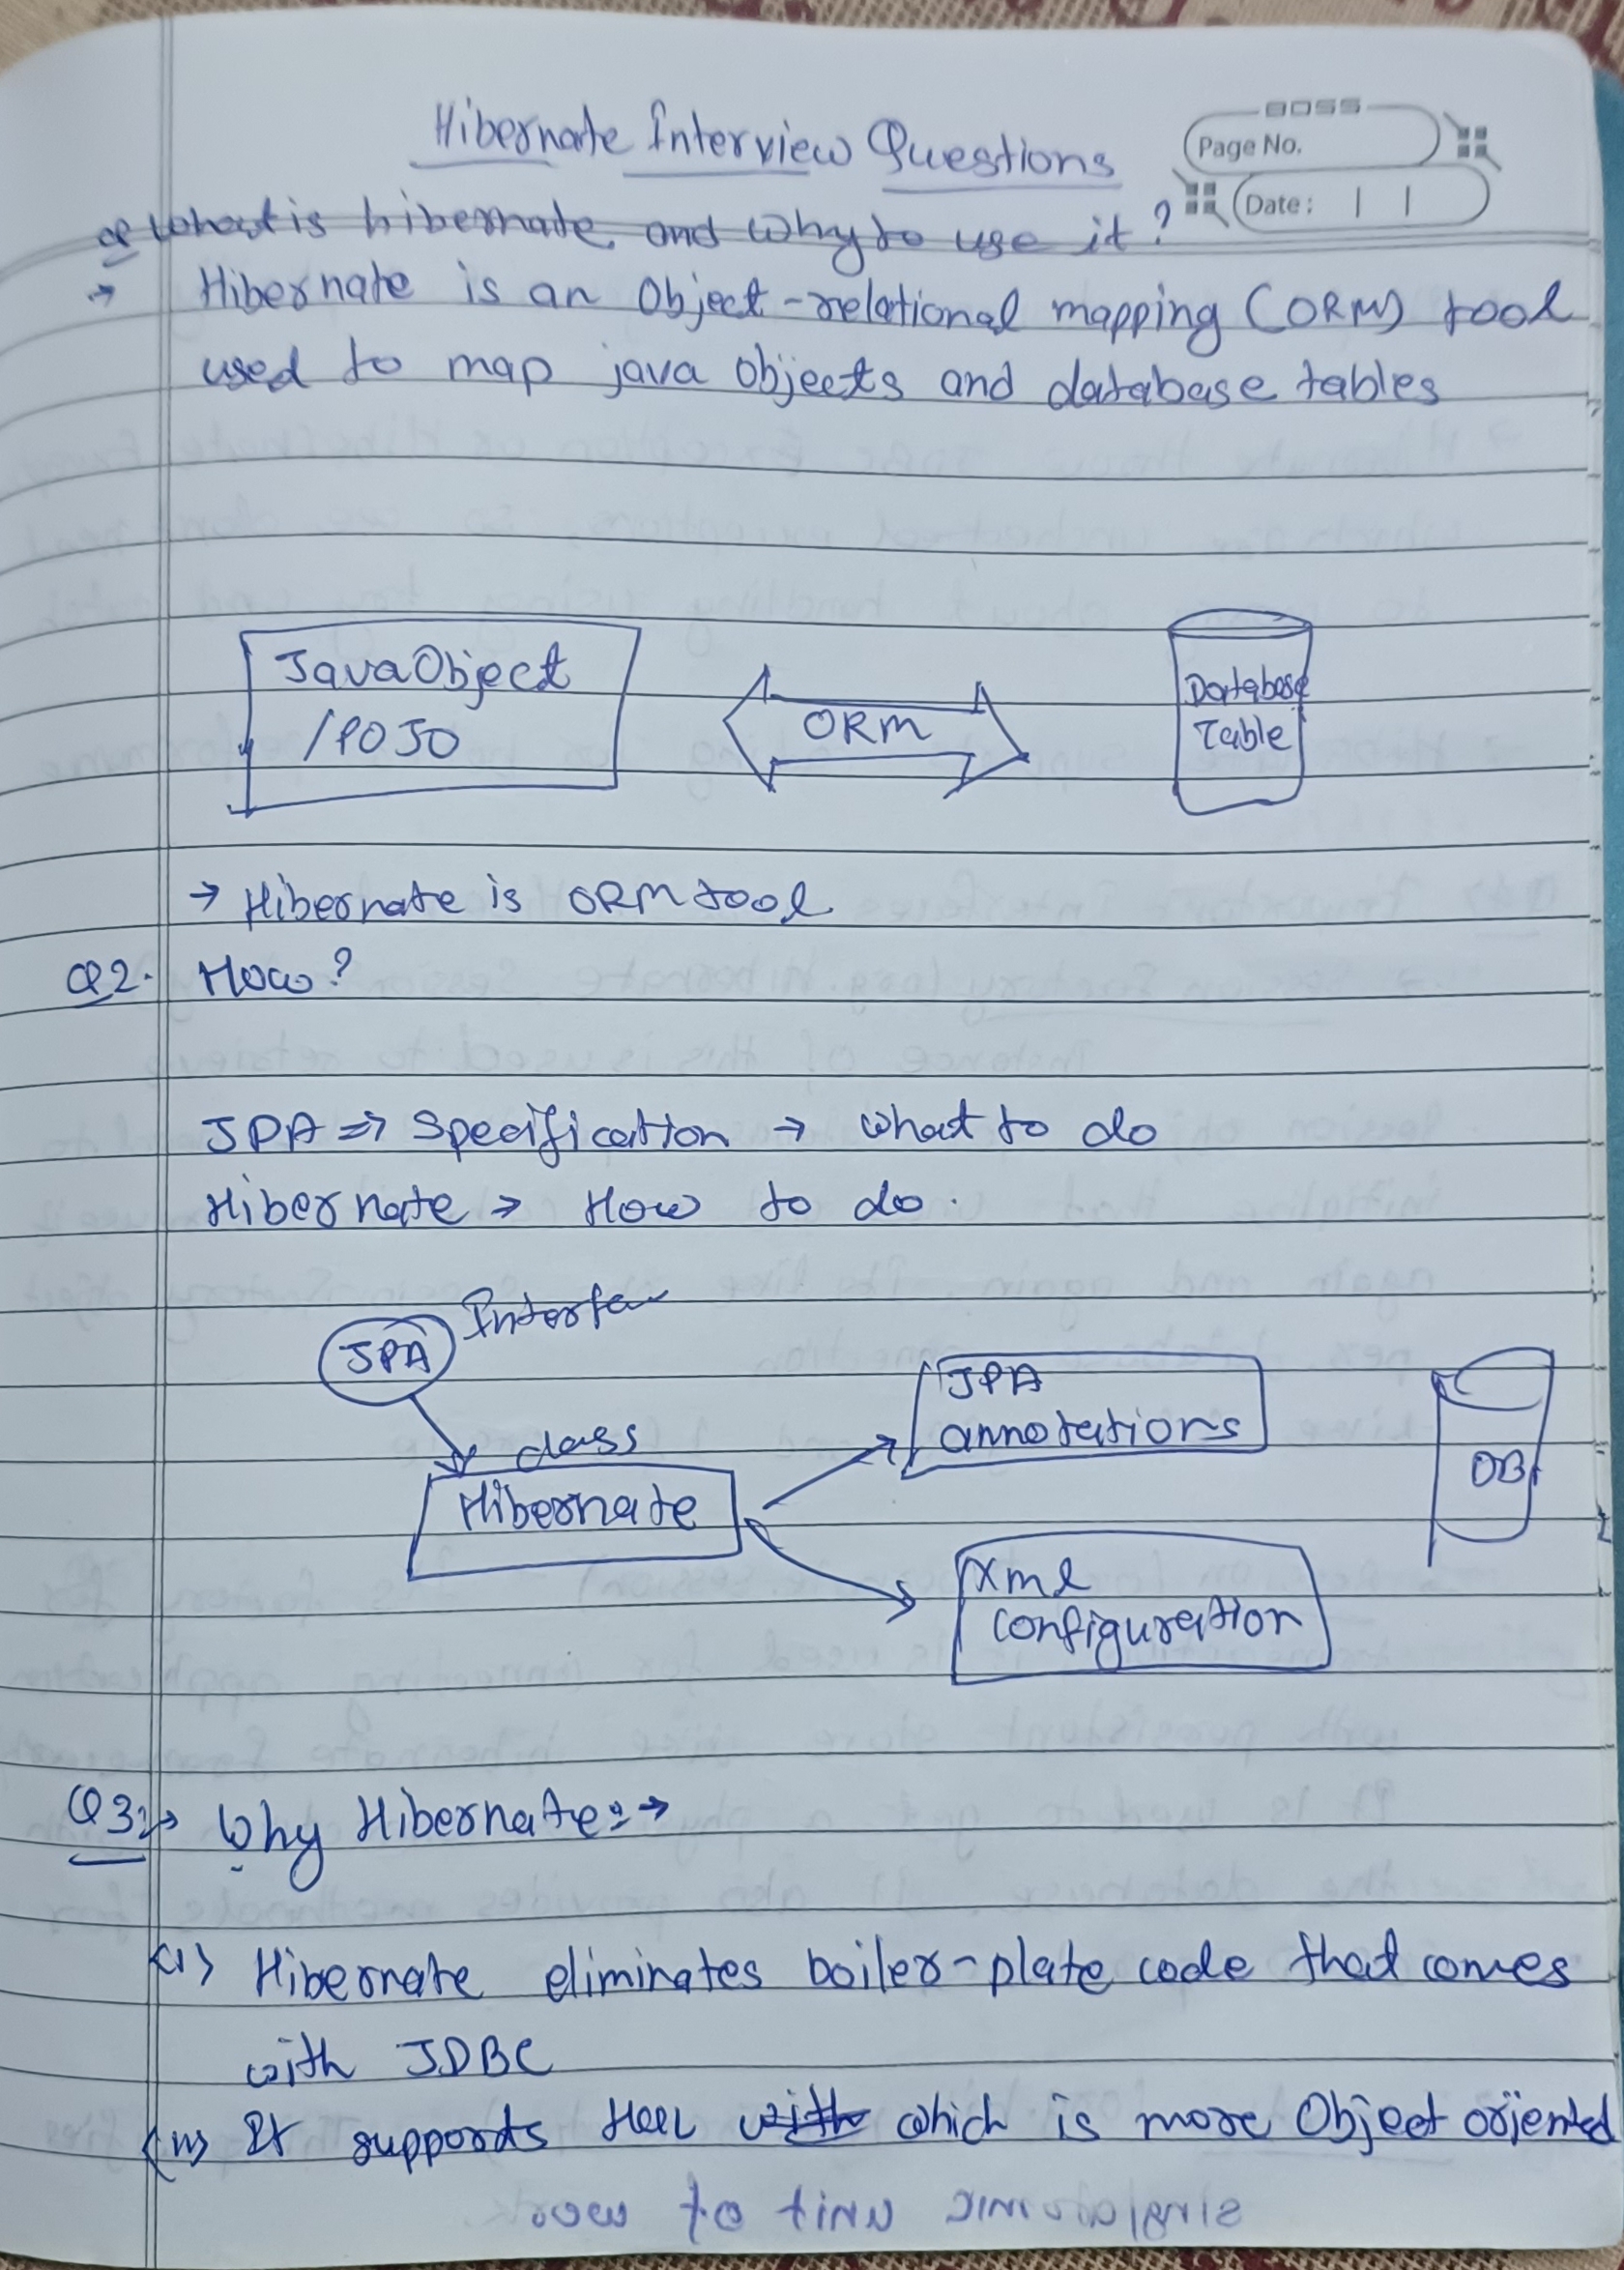 BOSS
Page No.
Date:
Hibernate Interview Questions
What is hibernate and why to use it?
→ Hibernate is an Object-relational mapping (ORM) tool
used to map java objects and database tables
JavaObject
/POJO
ORM
Database
Table
→ Hibernate is ORM tool
Q2. How?
JPA ⇒ Specification → what to do
Hibernate → How to do.
JPA
class
Hibernate
JPA
annotations
xml
configuration
DB
Q3:→ Why Hibernate:→
<i> Hibernate eliminates boiler-plate code that comes
with JDBC
<ii> It supports with which is more Object oriented